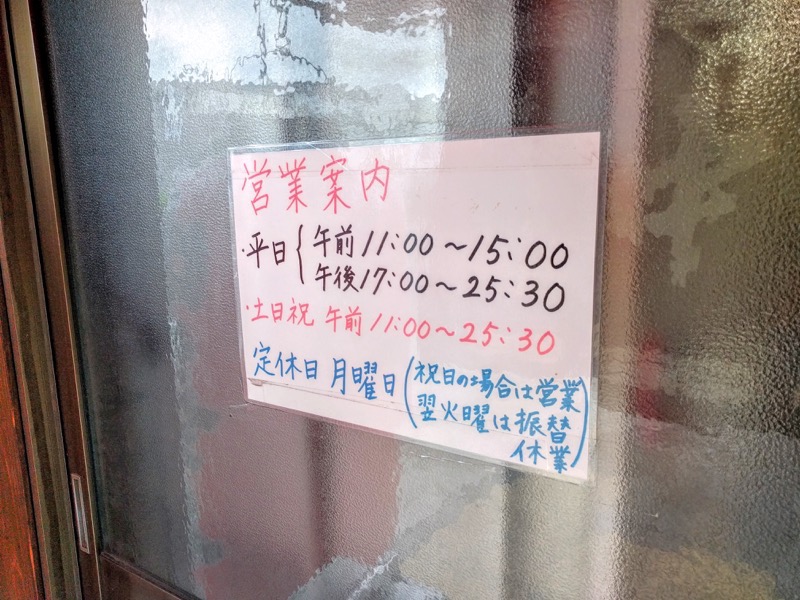 営業案内
・平日{午前11:00～15:00
午後17:00～25:30
・土日祝 午前11:00～25:30
定休日 月曜日(祝日の場合は営業
翌火曜は振替
休業)